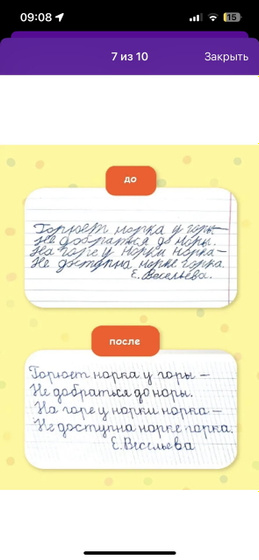 09:08
15
7 из 10
Закрыть
до
Горюет норка у горы –
Не добраться до норы.
На горе у норки норка –
Не доступна норке горка.
Е. Васильева.
после
Горюет норка у горы –
Не добраться до норы.
На горе у норки норка –
Не доступна норке горка.
Е. Васильева